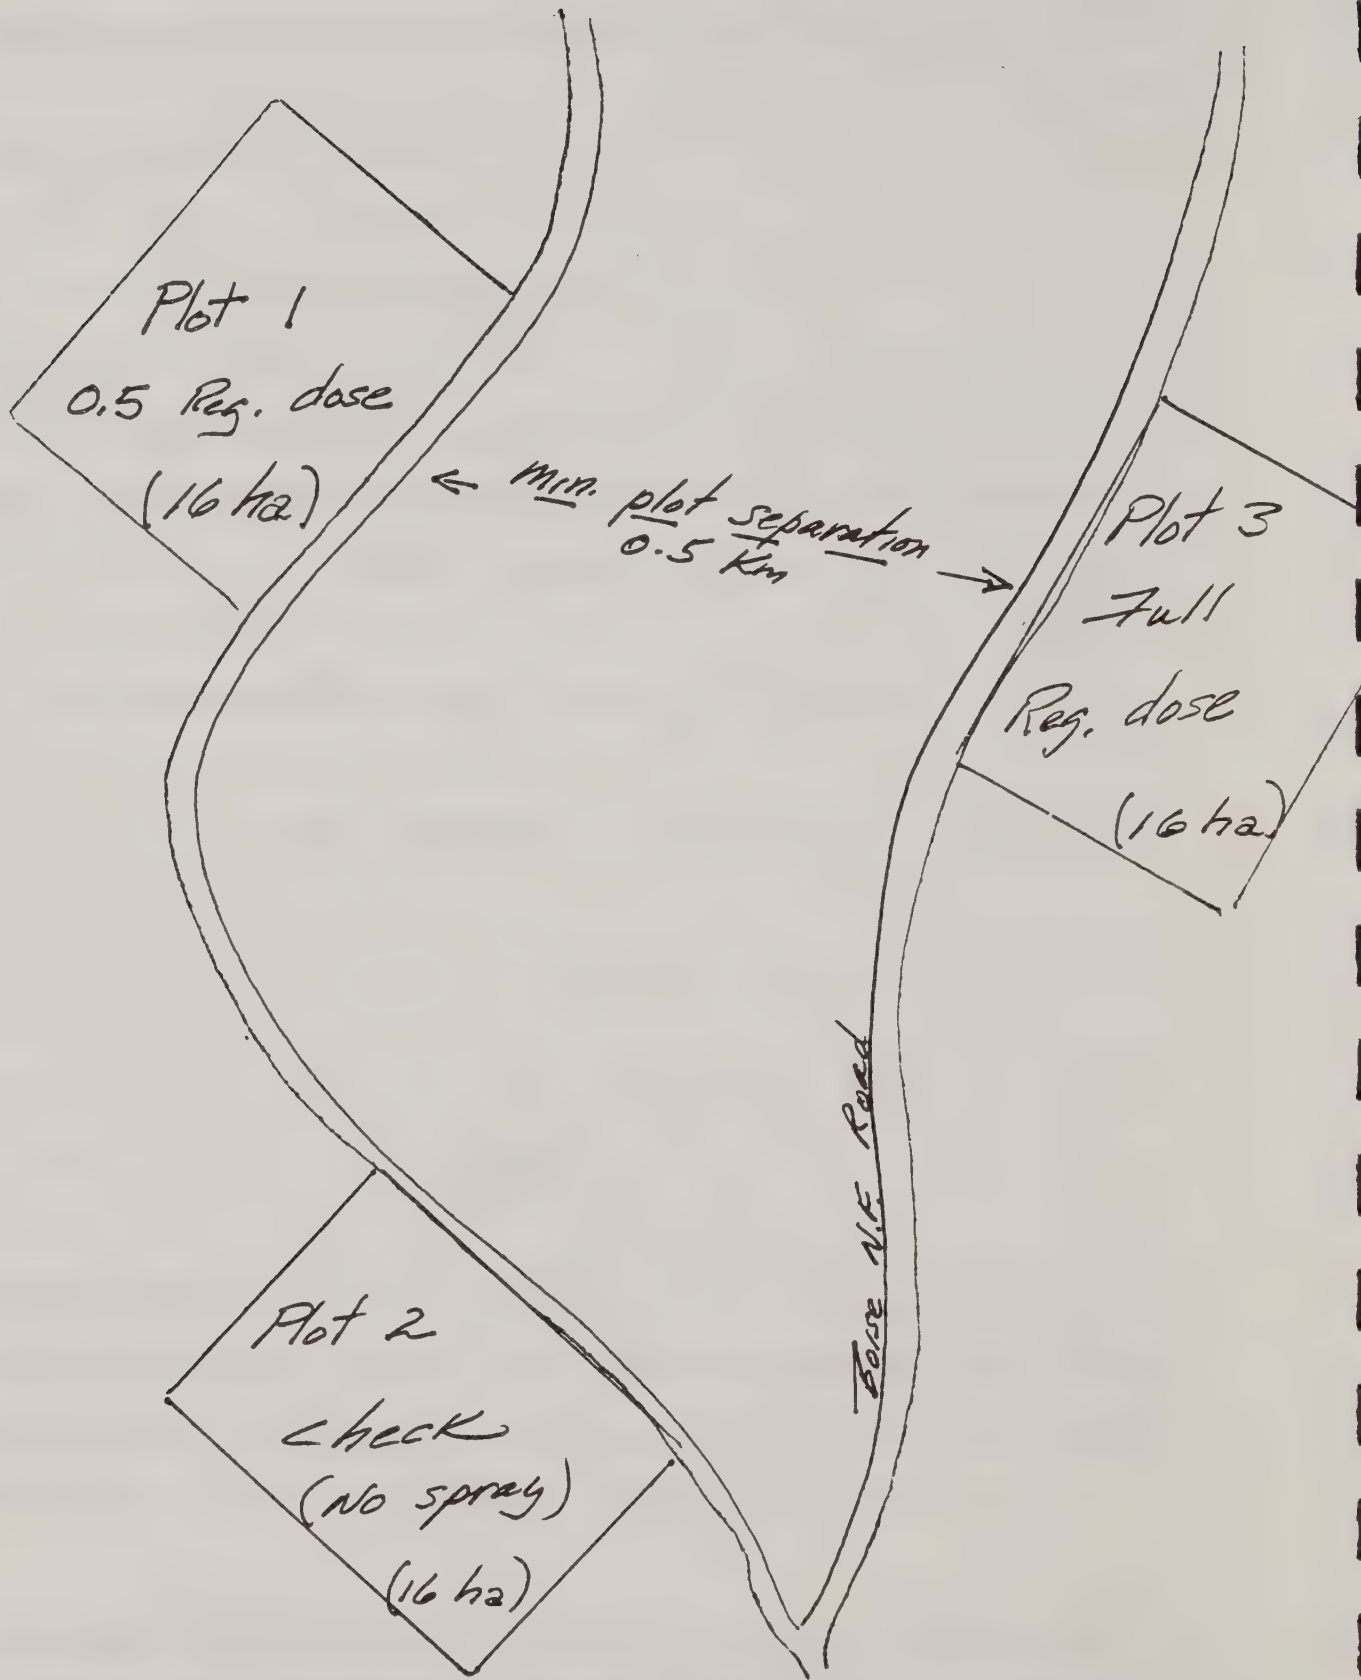 Plot 1
0.5 Reg. dose
(16 ha)
← min. plot separation →
0.5 Km
Plot 3
Full
Reg. dose
(16 ha)
Boise N.F. Road
Plot 2
check
(No spray)
(16 ha)